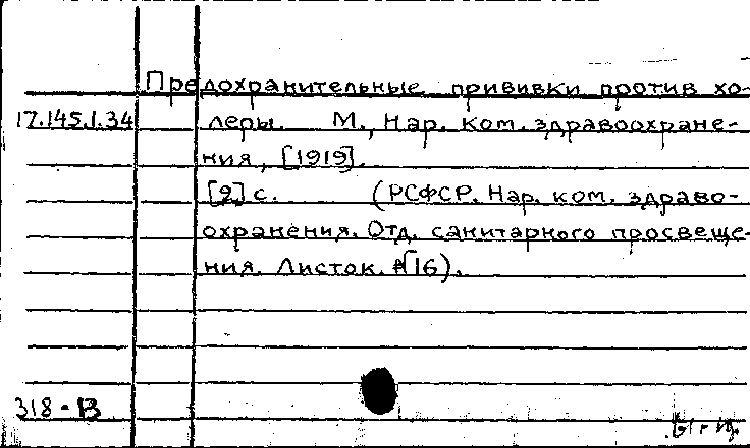 Предохранительные прививки против хо-
17.145.1.34 леры. М., Нар. ком. здравоохране-
ния, [1919].
[2] с. (РСФСР. Нар. ком. здраво-
охранения. Отд. санитарного просвеще-
ния. Листок. №16).
318-В